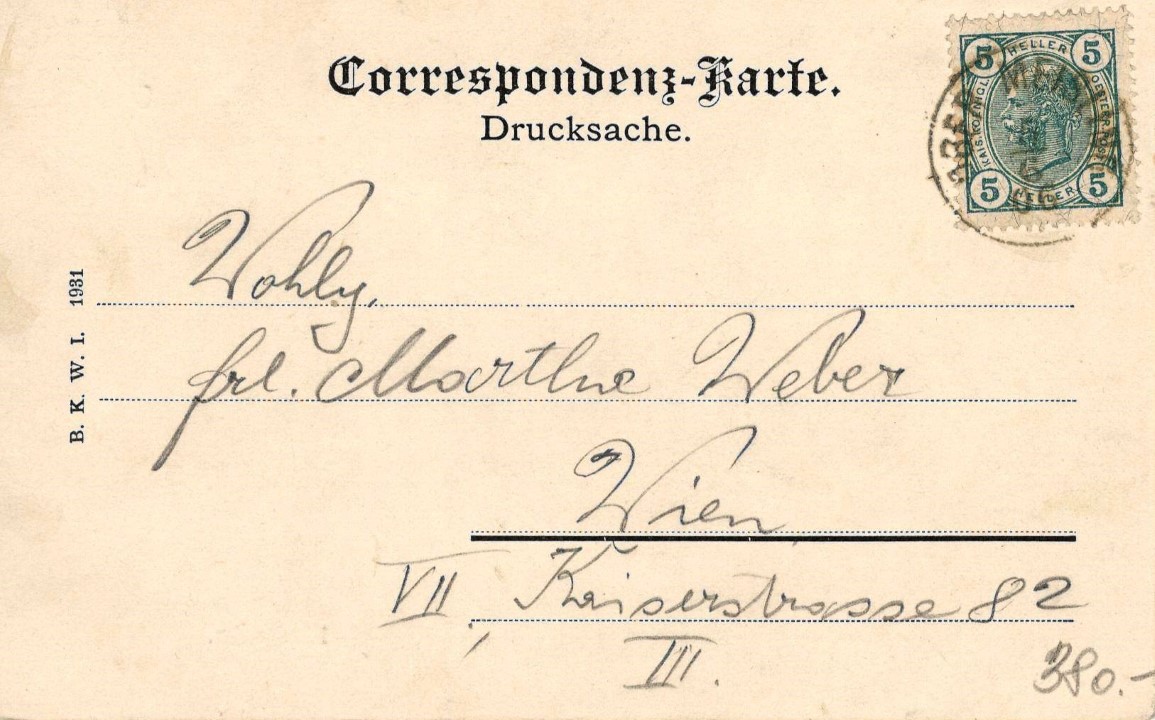 Correspondenz-Karte.
Drucksache.
5 HELLER 5
KAIS. KOENIGL.
5 HELLER 5
B. K. W. I. 1931
Wohlg.
frl. Marthe Weber
Wien
VII., Kaiserstrasse 82
III.
380.-